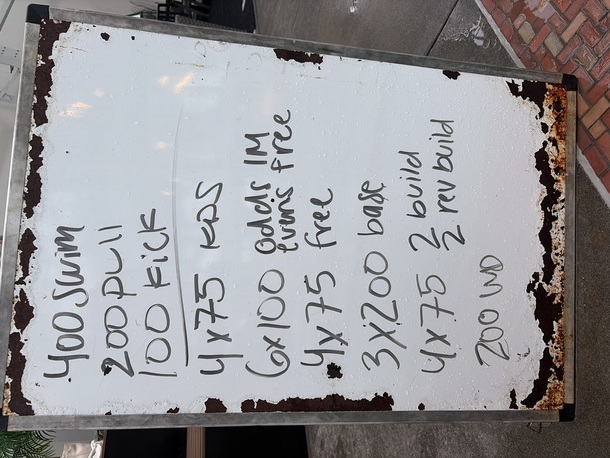 400 Swim
200 pull
100 kick
4x75 KDS
6x100 odds IM
evens free
4x75 free
3x200 base
4x75 2 build
2 rev build
200 WD